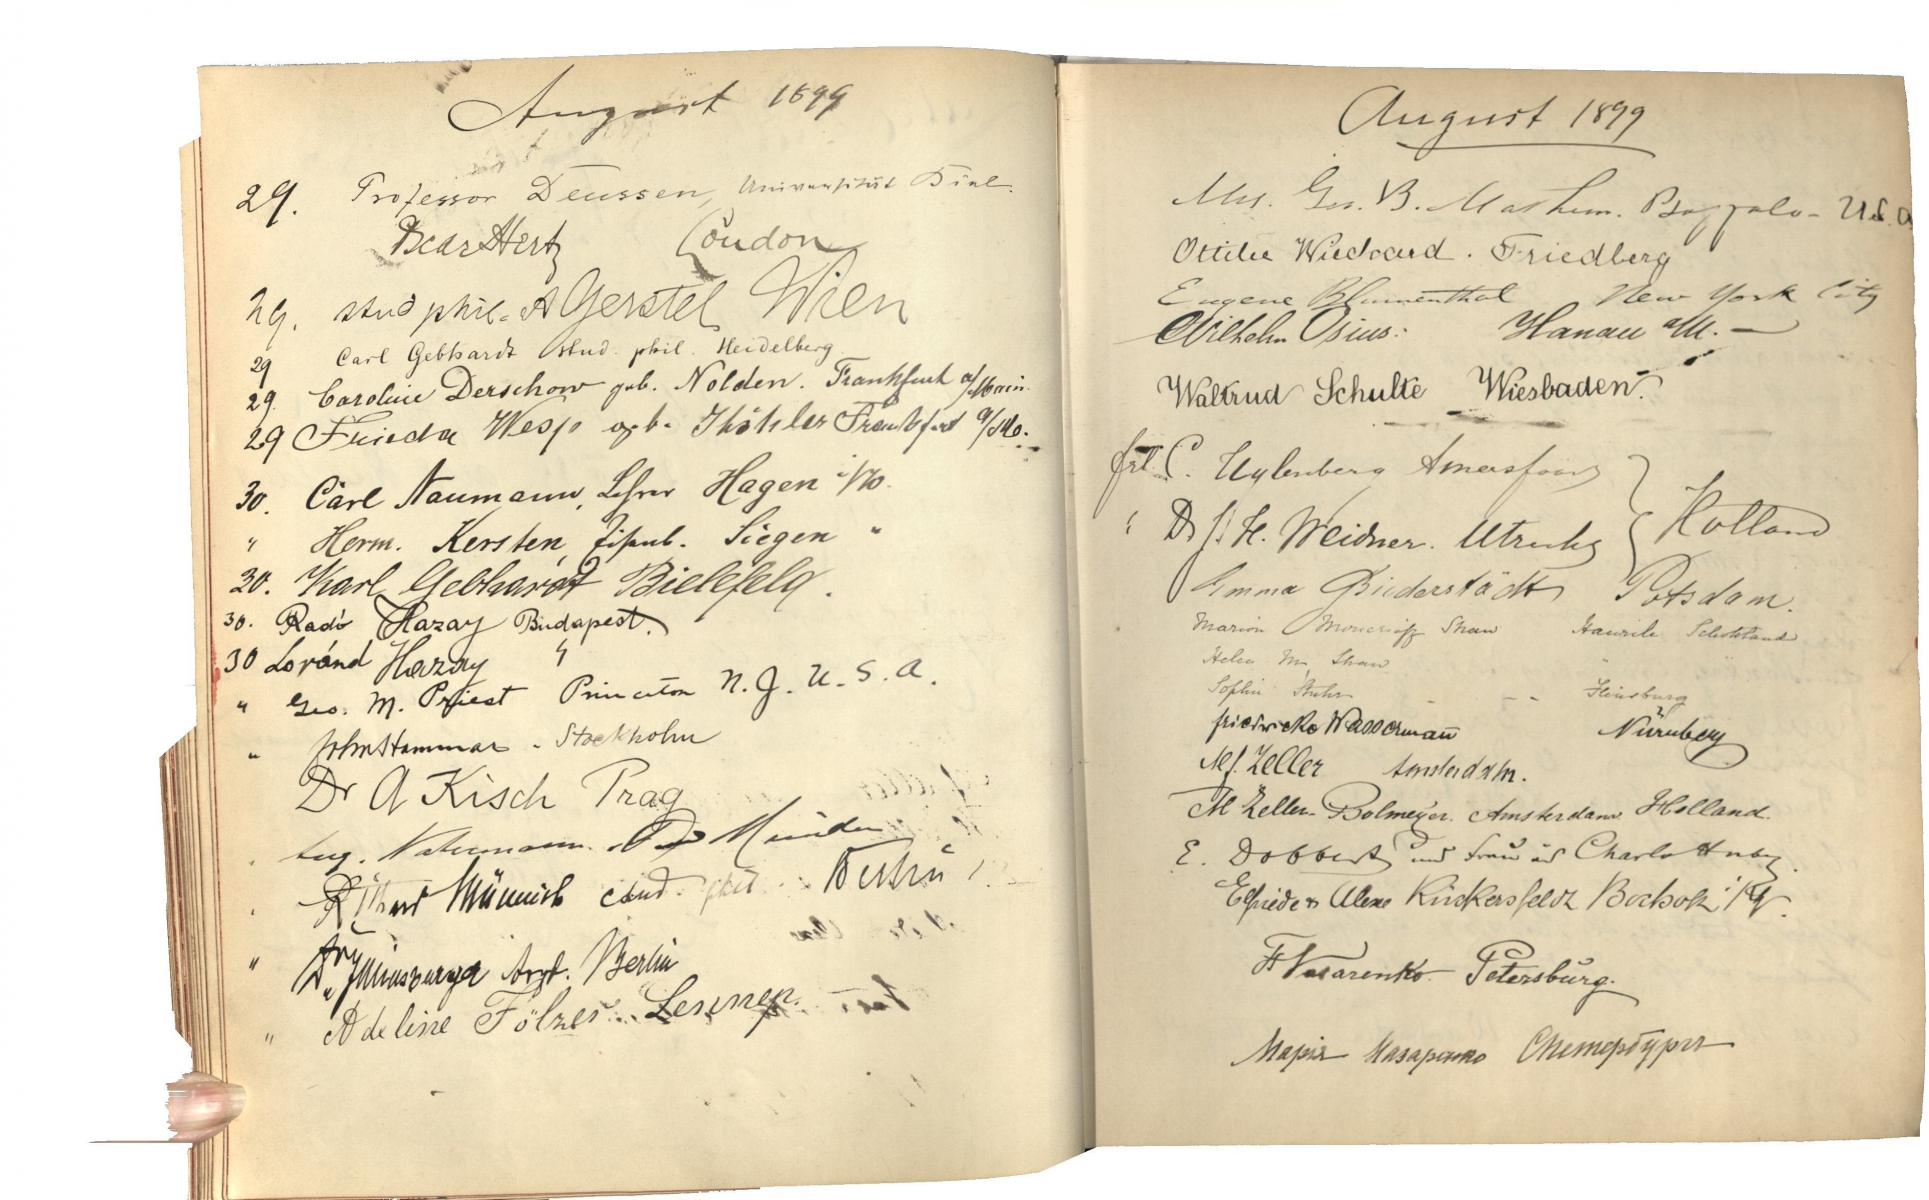 August 1899
29. Professor Deussen, Universität Kiel.
Hertz London
29. stud phil. A Gerstel Wien
29 Carl Gebhardt stud. phil. Heidelberg
29. Caroline Derschow geb. Nolden. Frankfurt a/Main.
29 Frieda Wesp geb. Frankfurt a/M.
30. Carl Naumann, Lehrer Hagen i/W.
" Herm. Kersten, Siegen "
30. Karl Gebhardt Bielefeld.
30. Radó Hazay Budapest.
30 Loránd Hazay "
" Geo. M. Priest Princeton N. J. U. S. A.
" John Hammar - Stockholm
Dr A Kisch Prag
Aug.
Münnich cand. phil.
" Dr Arzt. Berlin
" Adeline Fölzer.
August 1899
Mrs. Geo. B. Buffalo - U.S.A
Ottilie Wiedoard. Friedberg
Eugene Blumenthal New York City
Wilhelm Osius. Hanau a/M. -
Waltrud Schulte Wiesbaden.
Frl. C. Uylenberg Amersfoort
" Dr J. H. Weidner. Utrecht Holland
Emma Biederstädt Potsdam.
Marion Moncrieff Shaw Schottland
Helen M. Shaw "
Sophie - -- Flensburg
Friedricke Wassermann Nürnberg
M. J. Zeller Amsterdam.
M Zeller-Bolmeyer. Amsterdam Holland.
E. Dobbert und Frau aus Charlottenbg.
Elfriede & Alexe Kückersfeldt
Nasarenko Petersburg.
Марія Назаренко Спетербургъ